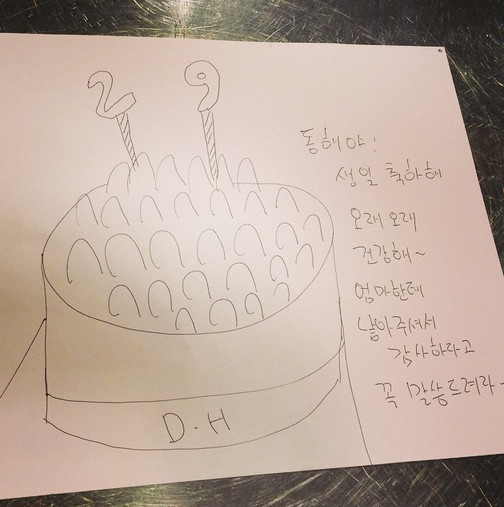 29
동해야!
생일 축하해
오래오래
건강해~
엄마한테
낳아주셔서
감사하다고
꼭 말씀드려라~
D.H